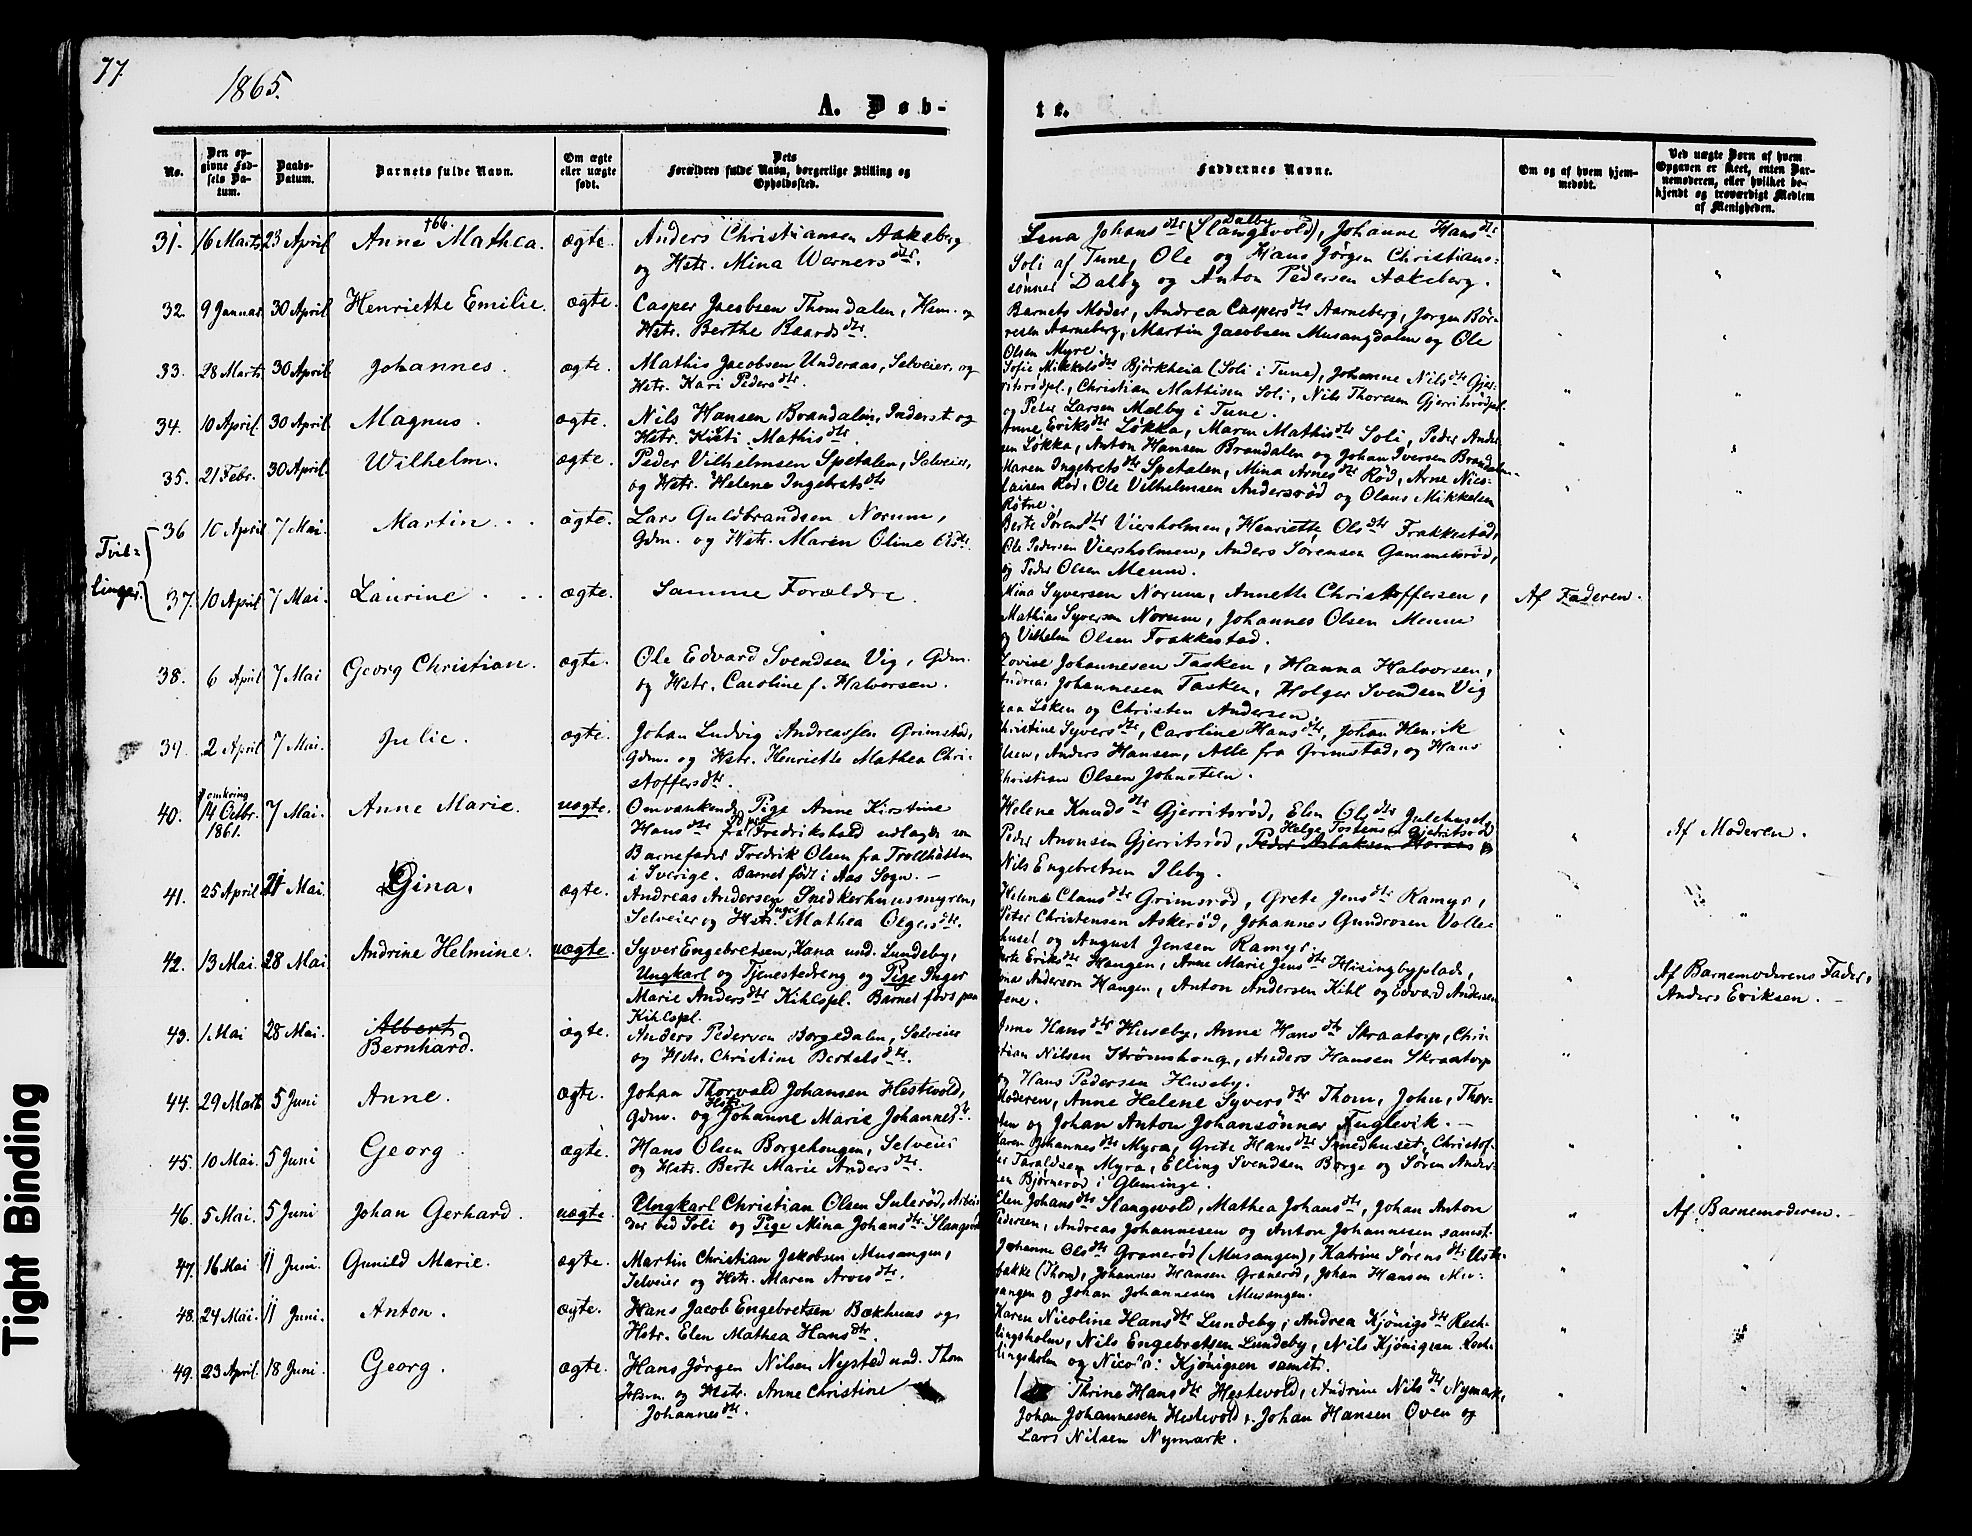 77.
1865.
A. Døb-
te.
No.
Den op-
givne Fød-
sels Da-
tum.
Daabs-
Datum.
Barnets fulde Navn.
Om ægte
eller uægte
født.
Dets
Forældres fulde Navn, borgerlige Stilling og
Opholdssted.
Faddernes Navne.
Om og af hvem hjem-
medøbt.
Ved uægte Børn af hvem
Opgaven er skeet, enten Bar-
nemoderen, eller hvilket be-
kjendt og troværdigt Medlem
af Menigheden.
31. 16 Marts 23 April Anne †66. Mathea. ægte. Anders Christiansen Aakeberg
og Hstr. Mina Warnersdtr.
Lena Johansdtr (Slangsvold), Dalby Johanne Hansdtr
Soli af Tune, Ole og Hans Jørgen Christians-
sønner Dalby og Anton Pedersen Aakeberg.
32. 9 Januar 30 April Henriette Emilie. ægte. Casper Jacobsen Thomdalen, Hsm. og
Hstr. Berthe Baardsdtr.
Barnets Moder, Andrea Caspersdtr Aarneberg, Jørgen Bør-
resen Aarneberg, Martin Jacobsen Musangdalen og Ole
Olsen Myre.
33. 28 Marts 30 April Johannes. ægte. Mathis Jacobsen Underaas, Selveier, og
Hstr. Kari Pedersdtr.
Sofie Mikkelsdtr Bjørkheia (Soli i Tune), Johanne Nilsdtr Gjer-
ritsrødpl., Christian Mathisen Soli, Nils Thoresen Gjerritsrødpl.
og Peter Larsen Mælby i Tune.
34. 10 April. 30 April Magnus. ægte. Nils Hansen Brandalen, Inderst og
Hstr. Kisti Mathisdtr.
Anne Eriksdtr Løkka, Maren Mathisdtr Soli, Peder Ander-
sen Løkka, Anton Hansen Brandalen og Johan Iversen Brandalen
35. 21 Febr. 30 April Wilhelm. ægte. Peder Vilhelmsen Spetalen, Selveier,
og Hstr. Helene Ingebretsdtr
Maren Ingebretsdtr Spetalen, Mina Arnesdtr Rød, Arne Nico-
laisen Rød, Ole Vilhelmsen Andersrød og Olaus Mikkelsen
Røtne.
Tvil-
linger.
36 10 April 7 Mai. Martin. ægte. Lars Guldbrandsen Norum,
Gdm. og Hstr. Maren Oline Olsdtr.
Berte Sørensdtr Viersholmen, Henriette Olsdtr Frakkestad,
Ole Pedersen Viersholmen, Anders Sørensen Gammelsrød,
og Peder Olsen Meum.
37. 10 April 7 Mai. Laurine. ægte. Samme Forældre.
Mina Syversen Norum, Annette Christoffersen,
Mathias Syversen Norum, Johannes Olsen Meum
og Vilhelm Olsen Frakkestad.
Af Faderen.
38. 6 April 7 Mai Georg Christian. ægte. Ole Edvard Svendsen Vig, Gdm.
og Hstr. Caroline f. Halvorsen.
Lovise Johannesen Tasken, Hanna Halvorsen,
Andreas Johannesen Tasken, Holger Svendsen Vig
Løken og Christen Andersen
39. 2 April 7 Mai. Julie. ægte. Johan Ludvig Andreassen Grimstad,
Gdm. og Hstr. Henriette Mathea Chri-
stoffersdtr.
Christine Syversdtr, Caroline Hansdtr, Johan Henrik
Olsen, Anders Hansen, Alle fra Grimstad, og Hans
Christian Olsen Johnsteen.
40. omkring
14 Octbr.
1861. 7 Mai. Anne Marie. uægte. Omvankende Pige Anne Kirstine
Hansdtr fra Fredrikshald udlagde som
Barnefader Fredrik Olsen fra Trollhättan
i Sverige. Barnet født i Aas Sogn. —
Helene Knudsdtr Gjerritsrød, Elen Olsdtr Julehuset,
Peder Anonsen Gjerritsrød, Helge Tostensen Gjerritsrød og
Nils Engebretsen Ileby.
Af Moderen.
41. 25 April 21 Mai. Gina. ægte. Andreas Andersen Snedkerhuusmyren,
Selveier og Hstr. Inger Mathea Olsdtr.
Helene Clausdtr Grimsrød, Grete Jensdtr Kamyr,
Peter Christensen Askerød, Johannes Gundrosen Valle-
huset og August Jensen Kamyr.
42. 13 Mai. 28 Mai Andrine Helmine. uægte. Syver Engebretsen, Kana und. Lundeby,
Ungkarl og Tjenestedreng og Pige Inger
Marie Andersdtr Kihlspl. Barnet født paa
Kihlspl.
Berte Eriksdtr Haugen, Anne Marie Jensdtr Hisingbyplads,
Jonas Anderson Haugen, Anton Andersen Kihl og Edvard Andersen
Af Barnemoderens Fader,
Anders Eriksen. —
43. 1. Mai 28 Mai. Albert
Bernhard. ægte. Anders Pedersen Borgedalen, Selveier
og Hstr. Christine Bertelsdtr.
Anne Hansdtr Huseby, Anne Hansdtr Skraatorp, Chri-
stian Nilsen Strømshoug, Anders Hansen Skraatorp
og Hans Pedersen Huseby.
44. 29 Marts 5 Juni Anne. ægte. Johan Thorvald Johansen Hestvold,
Gdm. og Hstr. Johanne Marie Johannesdtr.
Moderen, Anne Helene Syversdtr Thom, John, Thor-
sten og Johan Anton Johansønner Fuglevik. —
45. 10 Mai. 5 Juni Georg. ægte. Hans Olsen Borgehougen, Selveier
og Hstr. Berte Marie Andersdtr.
Karen Johannesdtr Myra, Grete Hansdtr Smedhuset, Christof-
fer Taraldsen Myra, Elling Svendsen Borge og Søren Ander-
sen Bjørnerød i Gleminge.
46. 5 Mai. 5 Juni Johan Gerhard. uægte. Ungkarl Christian Olsen Sulerød, Arbei-
der ved Soli og Pige Mina Johansdtr Slangsvold
Elen Johansdtr Slangsvold, Mathea Johansdtr, Johan Anton
Pedersen, Andreas Johannesen og Anton Johannesen samst.
Af Barnemoderen.
47. 16 Mai 11 Juni. Gunild Marie. ægte. Martin Christian Jakobsen Musangen,
Selveier og Hstr. Maren Arvesdtr.
Johanne Olsdtr Granerød (Musangen), Katrine Sørensdtr Ust-
bakke (Thom), Johannes Hansen Granerød, Johan Hansen Mu-
sangen og Johan Johannesen Musangen.
48. 24 Mai. 11 Juni. Anton. ægte. Hans Jacob Engebretsen Bækhuus og
Hstr. Elen Mathea Hansdtr.
Karen Nicoline Hansdtr Lundeby, Andrea Kjønigsdtr Rech-
lingsholm, Nils Engebretsen Lundeby, Nils Kjønigsen Rech-
lingsholm og Nico's: Kjønigsen samst.
49. 23 April. 18 Juni. Georg. ægte. Hans Jørgen Nilsen Nysted und. Thom
og Hstr. Anne Christine
Johannesdtr.
Thrine Hansdtr Hestevold, Andrine Nilsdtr Nymark,
Johan Johannesen Hestevold, Johan Hansen Oven og
Lars Nilsen Nymark.
Tight Binding